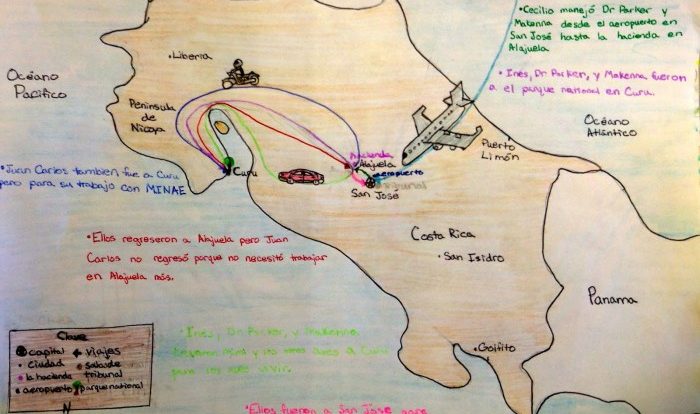 •Cecilia manejó Dr Parker y
Makenna desde el aeropuerto en
San José hasta la hacienda en
Alajuela
•Inés, Dr Parker, y Makenna fueron
a el parque national en Curu.
•Liberia
Océano
Pacífico
Océano
Atlántico
Península
de
Nicoya
Puerto
Limón
hacienda
Alajuela
aeropuerto
tribunal
San José
Curu
•Juan Carlos tambien fue a Curu
pero para su trabajo con MINAE
•Ellos regreseron a Alajuela pero Juan
Carlos no regresó porque no necesitó trabajar
en Alajuela más.
Costa Rica
•San Isidro
Panama
•Golfito
•Inés, Dr. Parker, y Makenna
a Curu
para los vivir.
Clave
capital
viajes
ciudad
salas de
tribunal
la hacienda
aeropuerto
parque national
N
•Ellos fueron a San José para